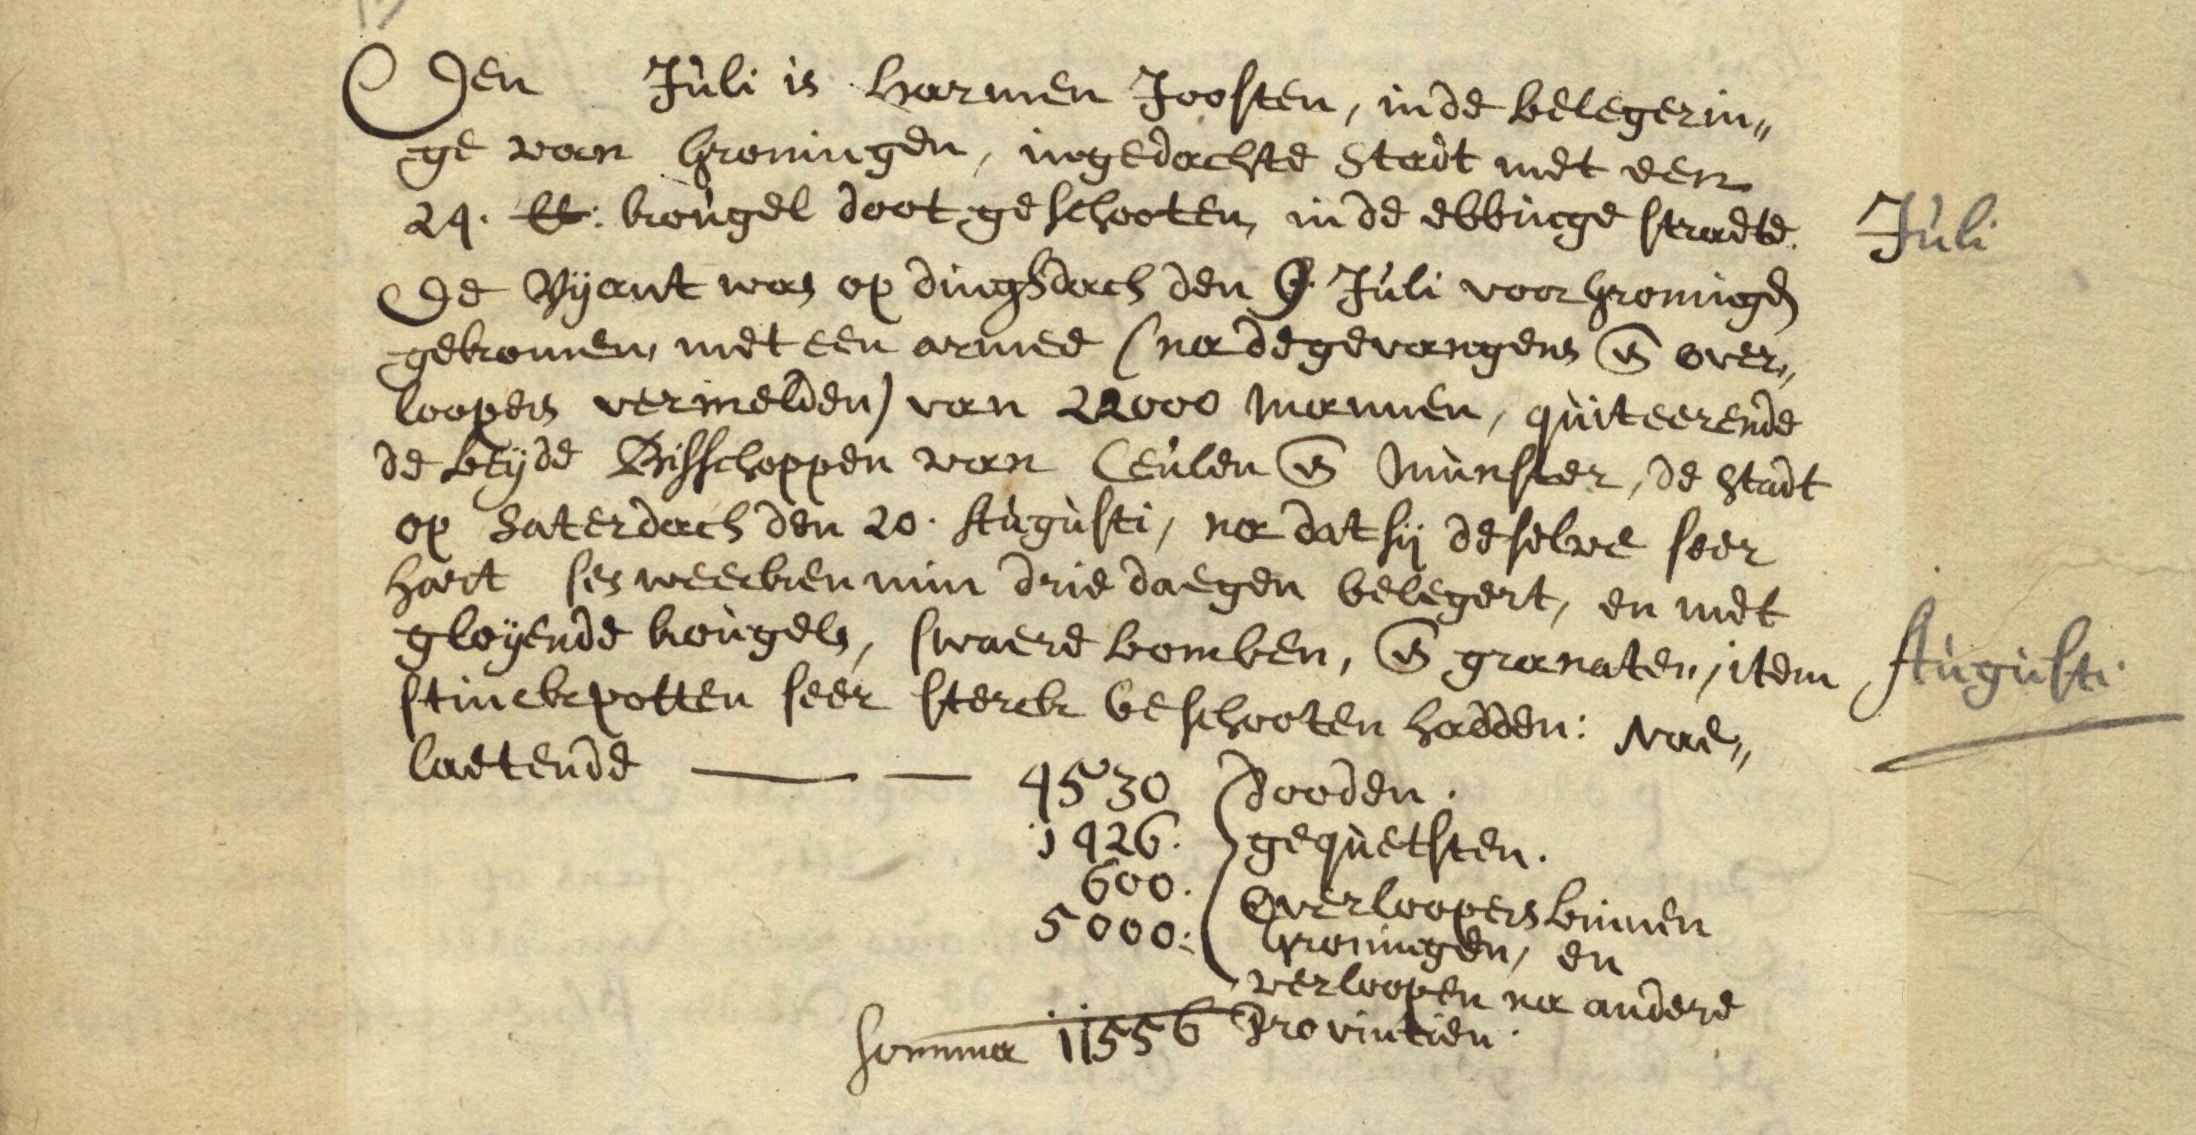 Den Juli is Harmen Joosten, in de belegerin„
ge van Groningen, in gedachte Stadt met een
24. lb: kougel doot geschooten, in de ebbinge straete.
Juli
De Vyant was op dingsdach den 9. Juli voor Groningen
gekomen, met een armee (na de gevangens en over„
loopers vermelden) van 22000 Mannen, quiteerende
de beyde Bisschoppen van Ceulen en Munster, de Stadt
op Saterdach den 20. Augusti, na dat sij deselve seer
hart ses weecken min drie daegen belegert, en met
gloyende kougels, swaere bomben, en granaten, item
Augusti
stinckpotten seer sterck beschooten hadden: Nae„
laetende — — 4530 Dooden.
1426. gequetsten.
600. Overloopers binnen
Groningen, en
5000: verloopen na andere
Somma 11556 Provintien.